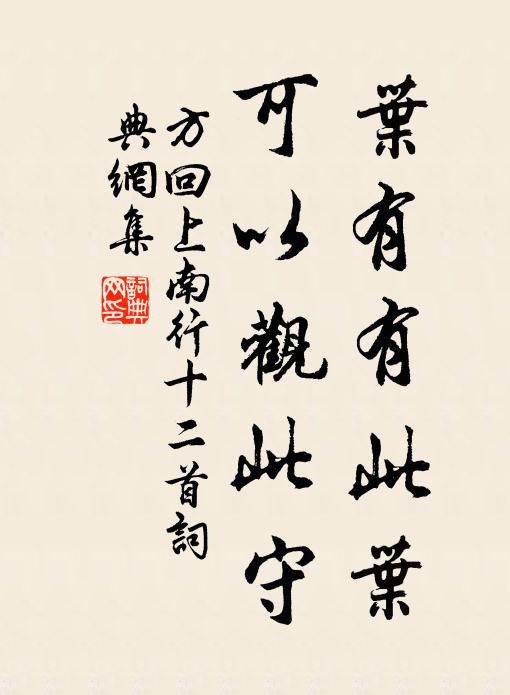 葉有有此葉
可以觀此守
方回上南行十二首詞
典網集
詞典網印